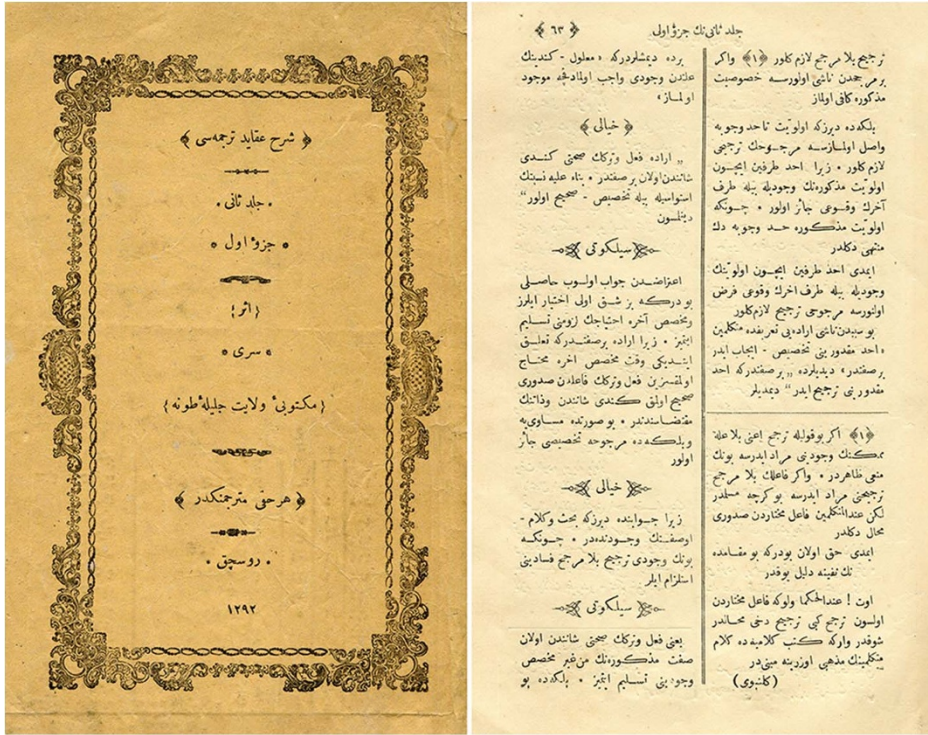 ﴿ شرح عقاید ترجمه‌سی ﴾
• جلد ثانی •
• جزؤ اول •
{ اثر }
• سری •
{ مکتوبیٔ ولایت جلیلهٔ طونه }
﴿ هر حقی مترجمنکدر ﴾
• روسچق •
۱۲۹۲
جلد ثانی‌نك جزؤ اولی
﴿ ٦٣ ﴾
ترجیح بلا مرجح لازم کلور ﴿١﴾ واکر
بر مرجحدن ناشی اولورسه خصوصیت
مذکوره کافی اولماز
بلکه‌ده دیرزکه اولویت تاحد وجوبه
واصل اولمازسه مرجوحك ترجیحی
لازم کلور • زیرا احد طرفین ایچون
اولویت مذکوره‌نك وجودیله بیله طرف
آخرك وقوعی جائز اولور • چونکه
اولویت مذکوره حد وجوبه دك
منتهی دکلدر
ایمدی احد طرفین ایچون اولویتك
وجودیله بیله طرف اخرك وقوعی فرض
اولنورسه مرجوحی ترجیح لازم کلور
بو سببدن ناشی اراده‌یی تعریفده متکلمین
« احد مقدورینی تخصیص - ایجاب ایدر
بر صفتدر » دیدیلرده „ بر صفتدرکه احد
مقدورینی ترجیح ایدر “ دیمدیلر
﴿١﴾ اکر بو قولیله ترجح یعنی بلا علة
ممکنك وجودینی مراد ایدرسه بونك
منعی ظاهردر • واکر فاعلك بلا مرجح
ترجیحنی مراد ایدرسه بو کرچه مسلمدر
لکن عند المتکلمین فاعل مختاردن صدوری
محال دکلدر
ایمدی حق اولان بودرکه بو مقامده
نك نفینه دلیل یوقدر
اوت ! عند الحکما ولوکه فاعل مختاردن
اولسون ترجح کبی ترجیح دخی محالدر
شوقدر وارکه کتب کلامیه‌ده کلام
متکلمینك مذهبی اوزرینه مبنی‌در
(کلنبوی)
برده دیمشلردرکه « معلول - کندینك
علتدن وجودی واجب اولمادقچه موجود
اولماز »
﴿ خیالی ﴾
„ اراده فعل وترکك صحتی کندی
شانندن اولان بر صفتدر • بناء علیه نسبتك
استواسیله بیله تخصیص - صحیح اولور “
دینلسون
سیلکوتی
اعتراضدن جواب اولوب حاصلی
بودرکه بز شق اولی اختیار ایلرز
ومخصص آخره احتیاجك لزومنی تسلیم
ایتمیز • زیرا اراده بر صفتدرکه تعلق
ایتدیکی وقت مخصص اخره محتاج
اولمقسزین فعل وترکك فاعلدن صدوری
صحیح اولمق کندی شانندن وذاتنك
مقتضاسندندر • بو صورتده مساوی‌یه
وبلکه‌ده مرجوحه تخصیصی جائز
اولور
خیالی
زیرا جوابنده دیرزکه بحث وکلام -
او صفتك وجودنده‌در • چونکه
بونك وجودی ترجیح بلا مرجح فسادینی
استلزام ایلر
سیلکوتی
یعنی فعل وترکك صحتی شانندن اولان
صفت مذکوره‌نك من غیر مخصص
وجودینی تسلیم ایتمیز • بلکه‌ده بو